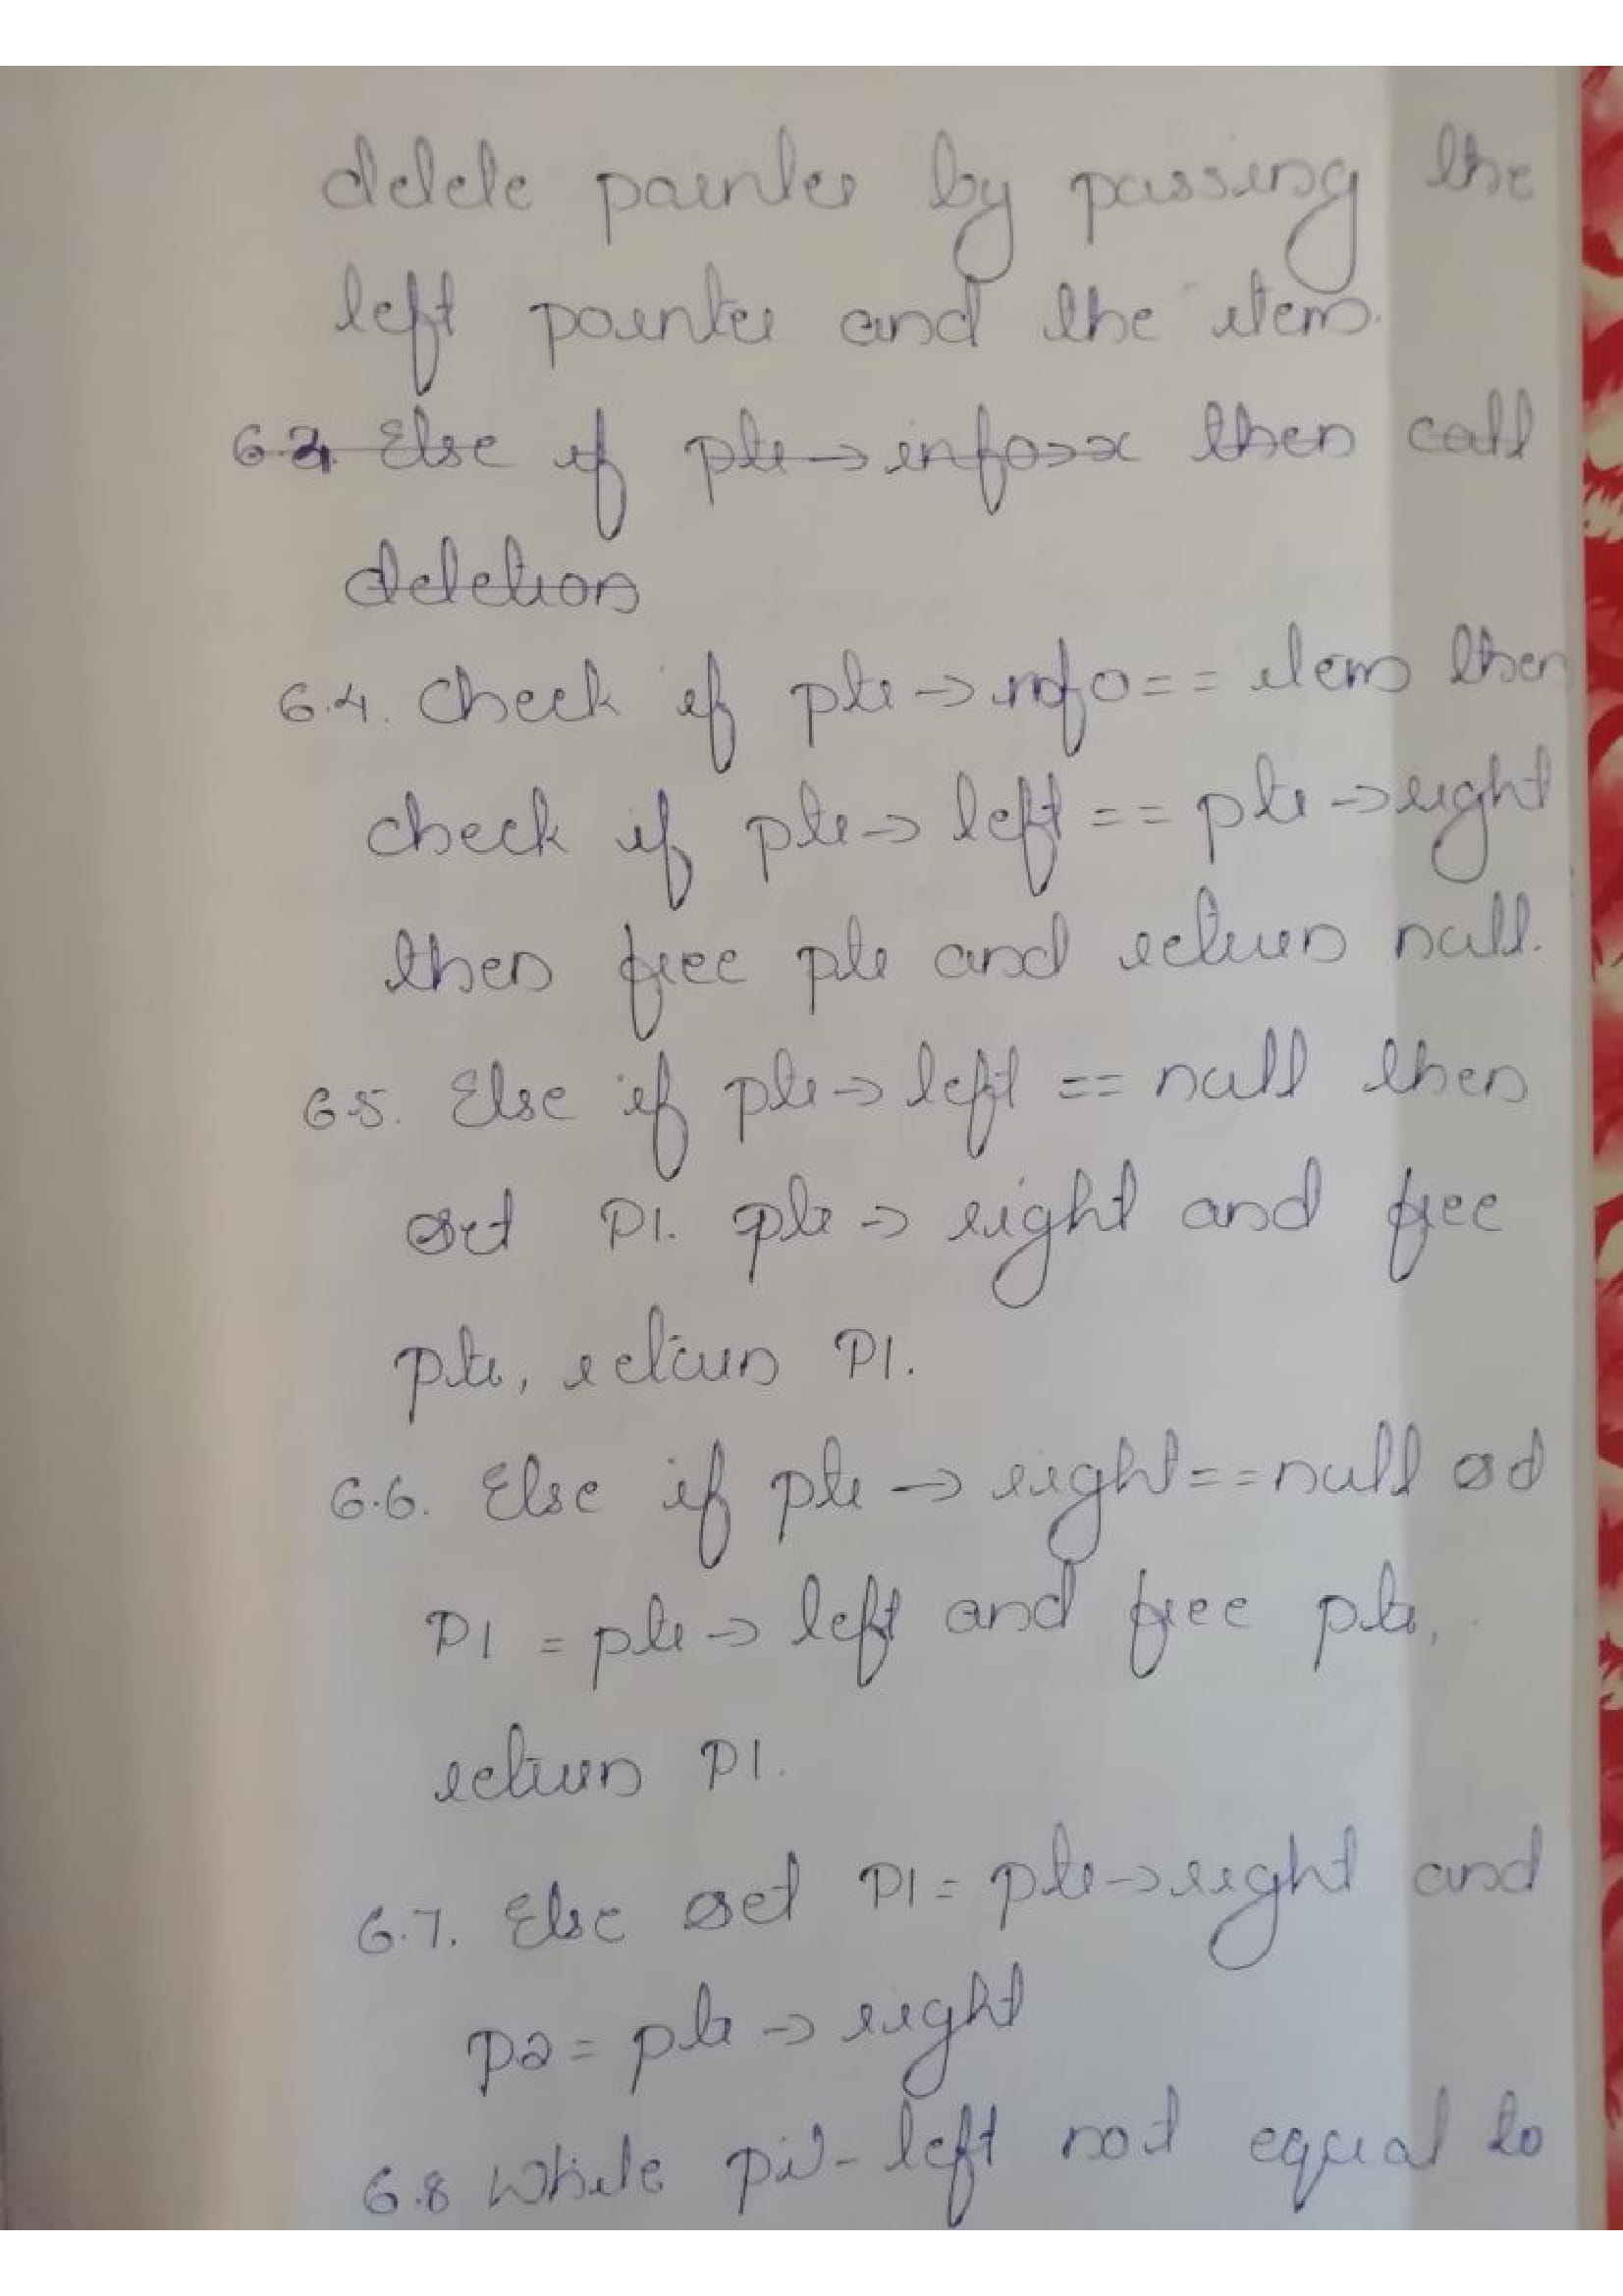 delete pointer by passing the
left pointer and the item.
6.3. Else if ptr→info>x then call
deletion
6.4. Check if ptr→info== item then
check if ptr→left == ptr→right
then free ptr and return null.
6.5. Else if ptr→left == null then
set P1. ptr→ right and free
ptr, return P1.
6.6. Else if ptr → right==null set
P1 = ptr→ left and free ptr,
return P1.
6.7. Else set P1= ptr→right and
P2= ptr→ right
6.8 While left not equal to